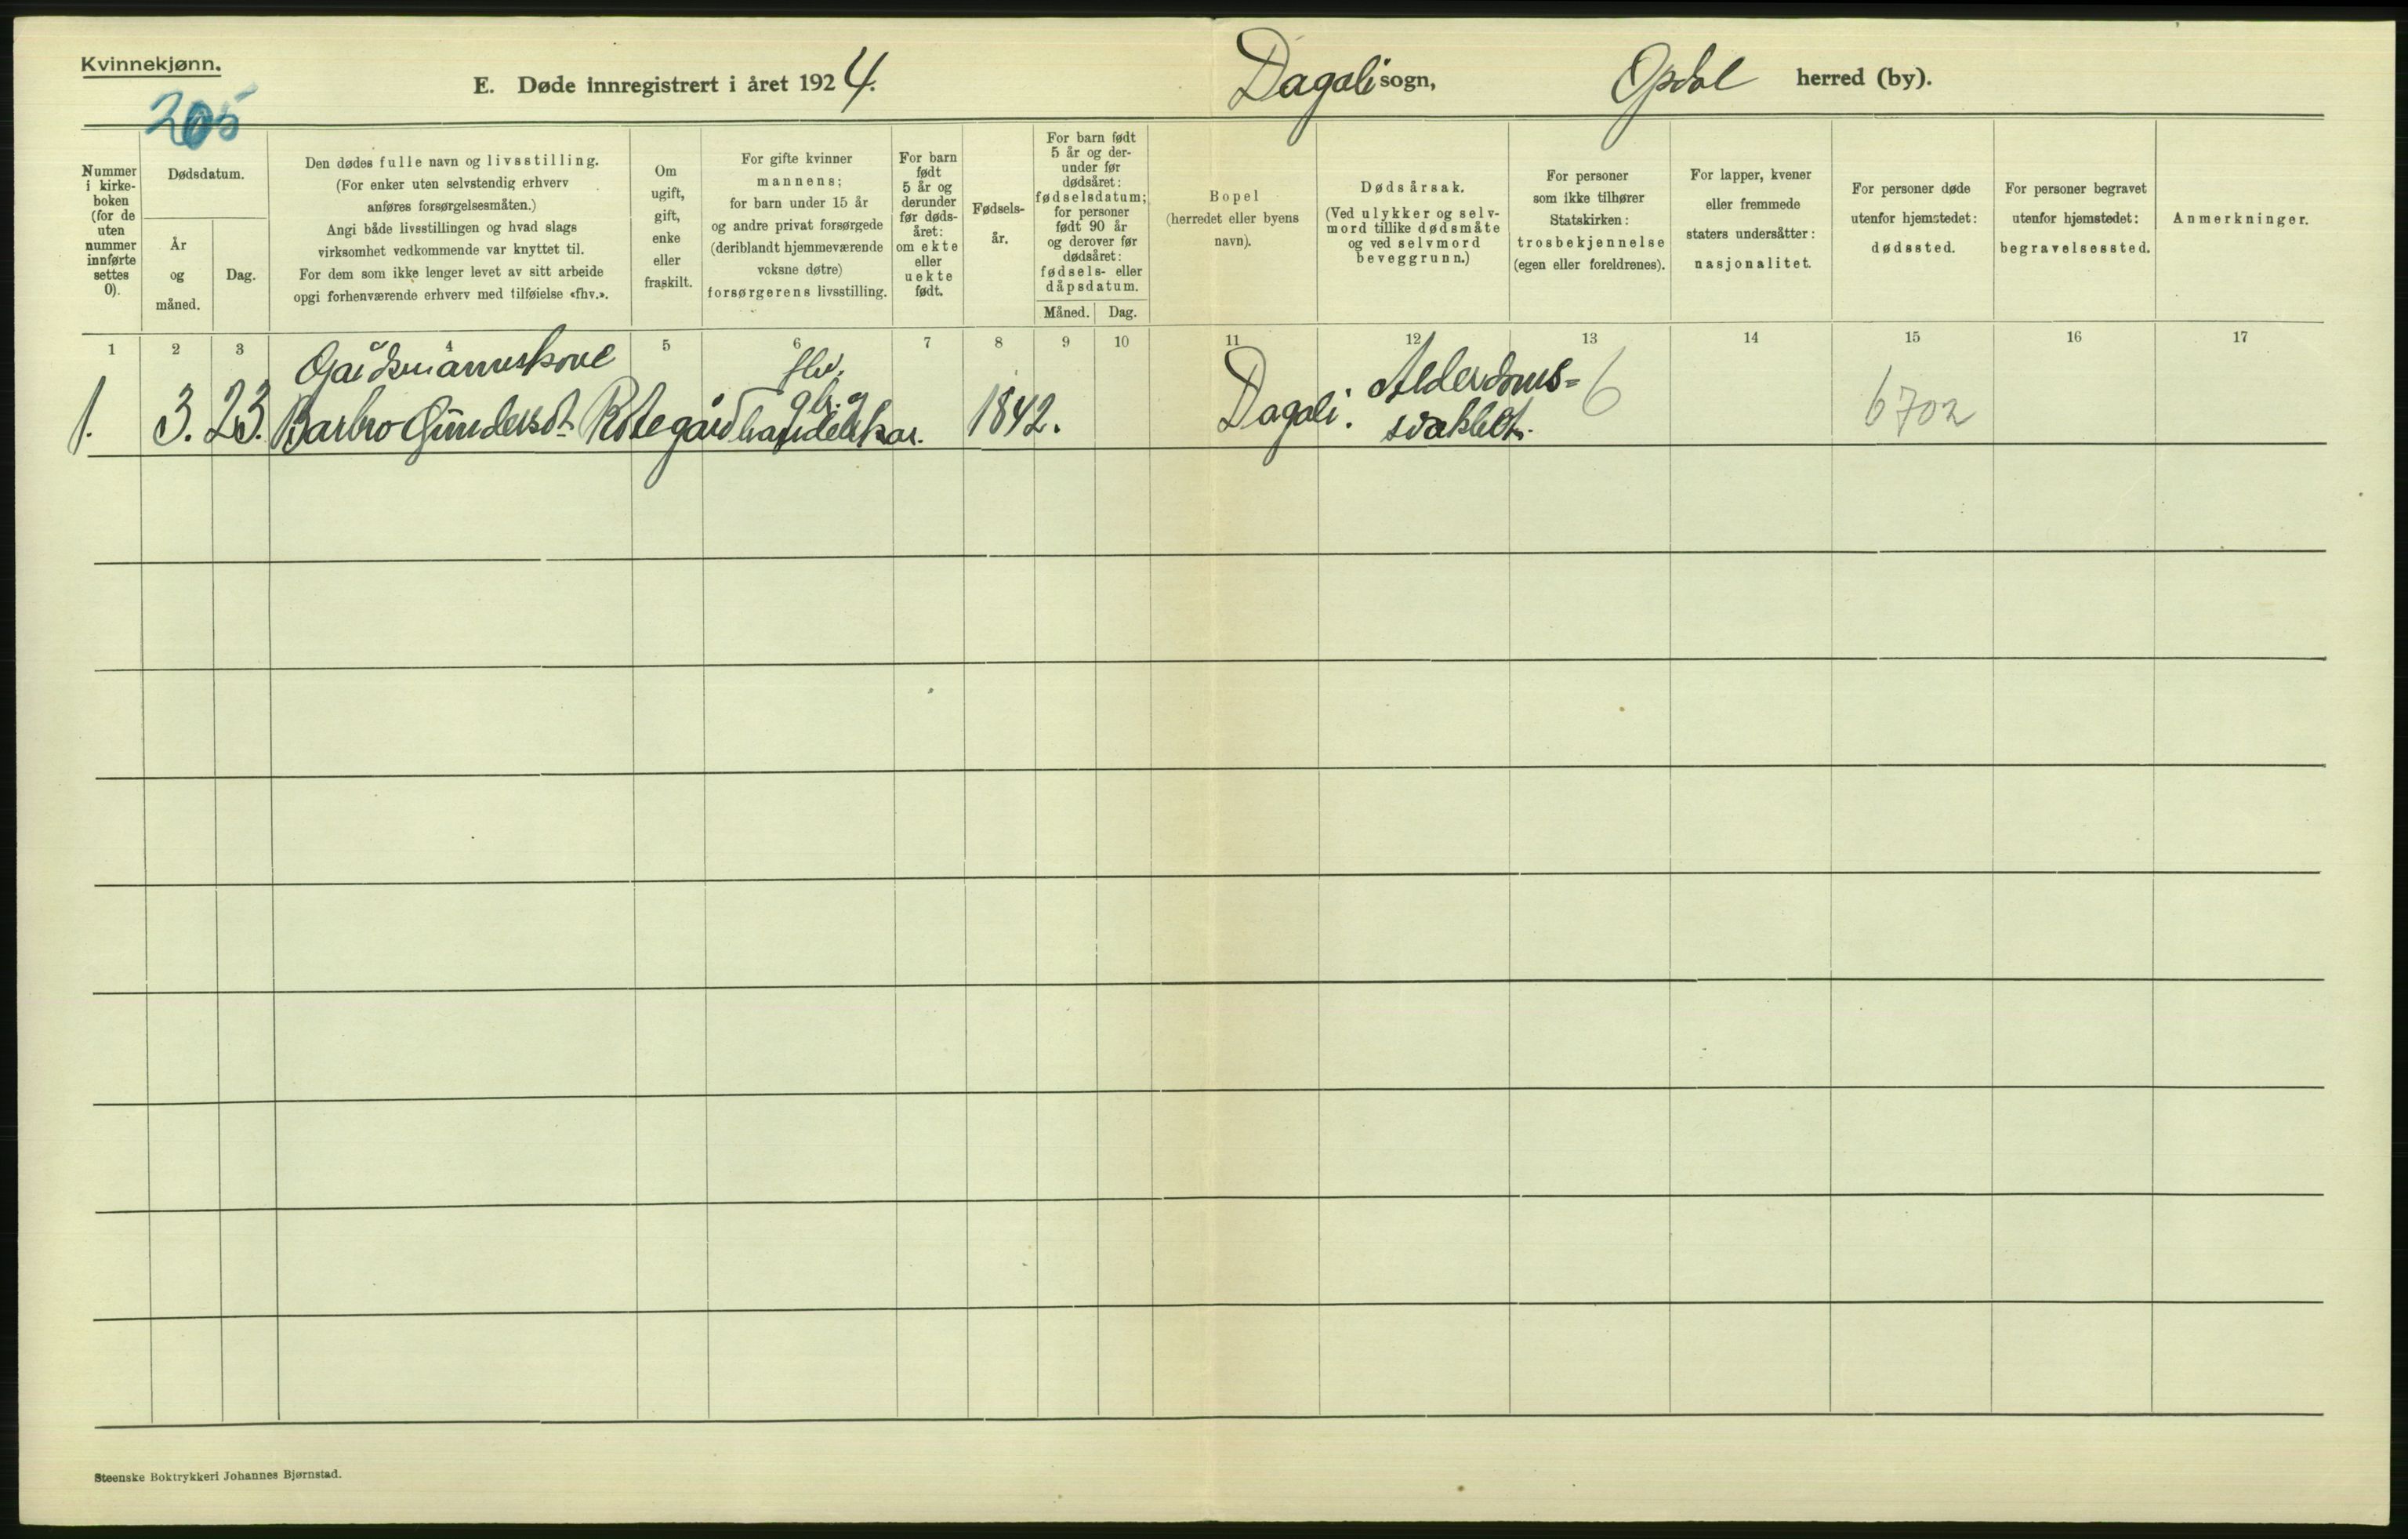 Kvinnekjønn.
E. Døde innregistrert i året 1924.
Dagali sogn,
Opdal herred (by).
205
Nummer
i kirke-
boken
(for de
uten
nummer
innførte
settes
0).
Dødsdatum.
År
og
måned.
Dag.
Den dødes fulle navn og livsstilling.
(For enker uten selvstendig erhverv
anføres forsørgelsesmåten.)
Angi både livsstillingen og hvad slags
virksomhet vedkommende var knyttet til.
For dem som ikke lenger levet av sitt arbeide
opgi forhenværende erhverv med tilføielse «fhv.».
Om
ugift,
gift,
enke
eller
fraskilt.
For gifte kvinner
mannens;
for barn under 15 år
og andre privat forsørgede
(deriblandt hjemmeværende
voksne døtre)
forsørgerens livsstilling.
For barn
født
5 år og
derunder
før døds-
året:
om ekte
eller
uekte
født.
Fødsels-
år.
For barn født
5 år og der-
under før
dødsåret:
fødselsdatum;
for personer
født 90 år
og derover før
dødsåret:
fødsels- eller
dåpsdatum.
Måned.
Dag.
Bopel
(herredet eller byens
navn).
Dødsårsak.
(Ved ulykker og selv-
mord tillike dødsmåte
og ved selvmord
beveggrunn.)
For personer
som ikke tilhører
Statskirken:
trosbekjennelse
(egen eller foreldrenes).
For lapper, kvener
eller fremmede
staters undersåtter:
nasjonalitet.
For personer døde
utenfor hjemstedet:
dødssted.
For personer begravet
utenfor hjemstedet:
begravelsessted.
Anmerkninger.
1 2 3 4 5 6 7 8 9 10 11 12 13 14 15 16 17
Gårdmannskone
fhv.
Alderdoms=
6
6702
1. 3. 23. Barbro Gundersdt. Rotegård gbr. og 1842. Dagali.
svakhet.
Steenske Boktrykkeri Johannes Bjørnstad.